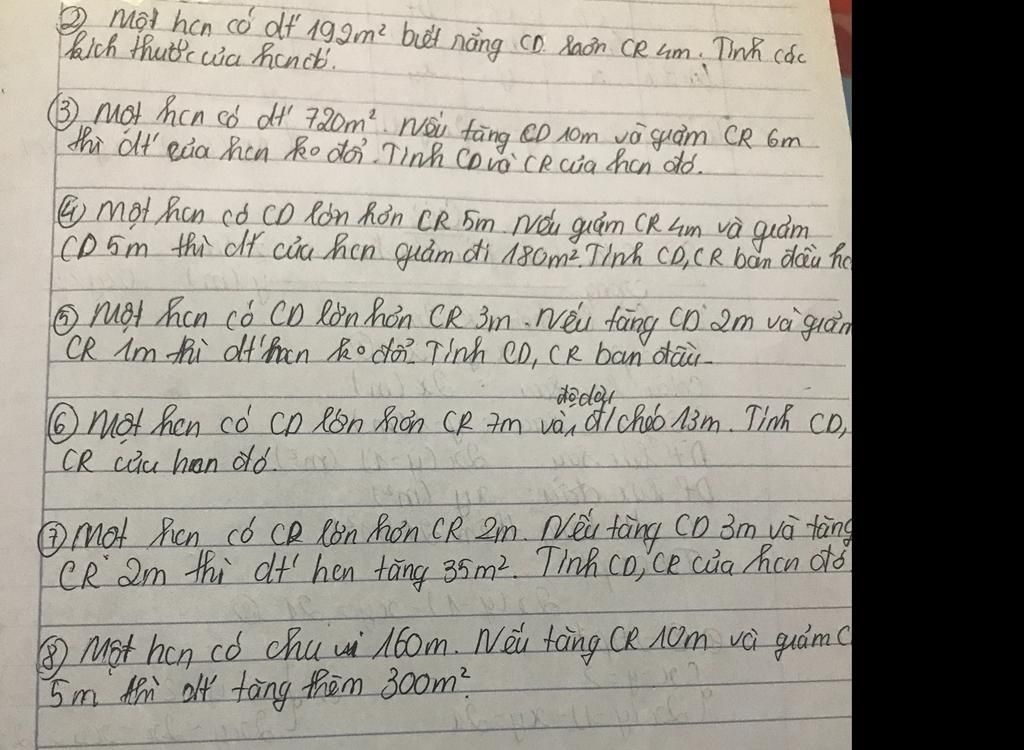 ② Một hcn có dt' 192m² biết rằng CD hơn CR 4m. Tính các
kích thước của hcn đó.
③ Một hcn có dt' 720m². Nếu tăng CD 10m và giảm CR 6m
thì dt' của hcn ko đổi. Tính CD và CR của hcn đó.
④ Một hcn có CD lớn hơn CR 5m. Nếu giảm CR 4m và giảm
CD 5m thì dt' của hcn giảm đi 180m². Tính CD, CR ban đầu hc
⑤ Một hcn có CD lớn hơn CR 3m. Nếu tăng CD 2m và giảm
CR 1m thì dt' hcn ko đổi. Tính CD, CR ban đầu.
độ dài
⑥ Một hcn có CD lớn hơn CR 7m và, đ/chéo 13m. Tính CD,
CR của hcn đó.
⑦ Một hcn có CD lớn hơn CR 2m. Nếu tăng CD 3m và tăng
CR 2m thì dt' hcn tăng 35m². Tính CD, CR của hcn đó
⑧ Một hcn có chu vi 160m. Nếu tăng CR 10m và giảm C
5m thì dt' tăng thêm 300m².